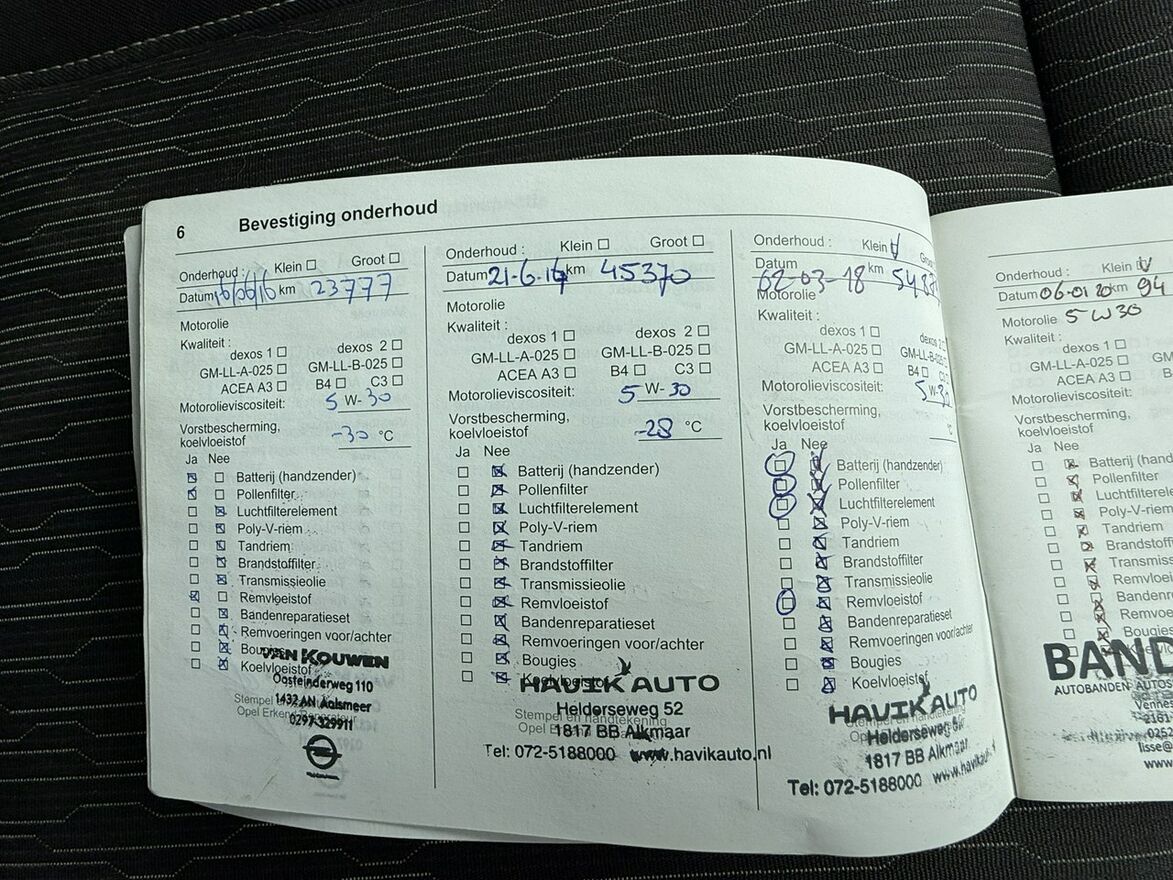 6 Bevestiging onderhoud
Onderhoud : Klein Groot
Datum 16/06/16 km 23777
Motorolie
Kwaliteit :
dexos 1 dexos 2
GM-LL-A-025 GM-LL-B-025
ACEA A3 B4 C3
Motorolieviscositeit: 5 W-30
Vorstbescherming,
koelvloeistof -30 °C
Ja Nee
Batterij (handzender)
Pollenfilter
Luchtfilterelement
Poly-V-riem
Tandriem
Brandstoffilter
Transmissieolie
Remvloeistof
Bandenreparatieset
Remvoeringen voor/achter
Bougies
Koelvloeistof
VAN KOUWEN
Oosteinderweg 110
1432 AN Aalsmeer
0297-329911
Onderhoud : Klein Groot
Datum 21-6-17 km 45370
Motorolie
Kwaliteit :
dexos 1 dexos 2
GM-LL-A-025 GM-LL-B-025
ACEA A3 B4 C3
Motorolieviscositeit: 5 W-30
Vorstbescherming,
koelvloeistof -28 °C
Ja Nee
Batterij (handzender)
Pollenfilter
Luchtfilterelement
Poly-V-riem
Tandriem
Brandstoffilter
Transmissieolie
Remvloeistof
Bandenreparatieset
Remvoeringen voor/achter
Bougies
Koelvloeistof
HAVIK AUTO
Stempel en handtekening
Helderseweg 52
1817 BB Alkmaar
Tel: 072-5188000 www.havikauto.nl
Onderhoud : Klein
Datum 02-03-18 km
Motorolie
Kwaliteit :
dexos 1
GM-LL-A-025
ACEA A3 B4
Motorolieviscositeit: 5 W-30
Vorstbescherming,
koelvloeistof
Ja Nee
Batterij (handzender)
Pollenfilter
Luchtfilterelement
Poly-V-riem
Tandriem
Brandstoffilter
Transmissieolie
Remvloeistof
Bandenreparatieset
Remvoeringen voor/achter
Bougies
Koelvloeistof
HAVIK AUTO
Helderseweg
1817 BB Alkmaar
Tel: 072-5188000
Onderhoud : Klein
Datum 06-01 20 km 94
Motorolie 5 W30
Kwaliteit :
dexos 1
GM-LL-A-025
ACEA A3
Motorolieviscositeit:
Vorstbescherming,
koelvloeistof
Ja Nee
Batterij (handzender)
Pollenfilter
Luchtfilterelement
Poly-V-riem
Tandriem
Brandstoff
Transmiss
Remvloei
Bandenr
Remvoe
Bougies
BAND
AUTOBANDEN AUTOS